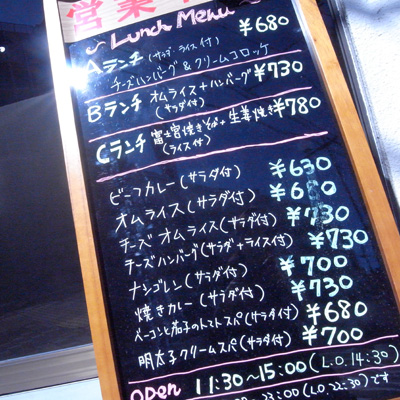 営業中
Lunch Menu
Aランチ (サラダ・ライス付) ¥680
チーズハンバーグ&クリームコロッケ
Bランチ オムライス+ハンバーグ ¥730
(サラダ付)
Cランチ 富士宮焼きそば+生姜焼き ¥780
(ライス付)
ビーフカレー(サラダ付) ¥630
オムライス(サラダ付) ¥680
チーズオムライス(サラダ付) ¥730
チーズハンバーグ(サラダ+ライス付) ¥730
ナシゴレン(サラダ付) ¥700
焼きカレー(サラダ付) ¥730
ベーコンと茄子のトマトスパ(サラダ付) ¥680
明太子クリームスパ(サラダ付) ¥700
OPEN 11:30~15:00(L.O.14:30)
23:00(L.O.22:30)です